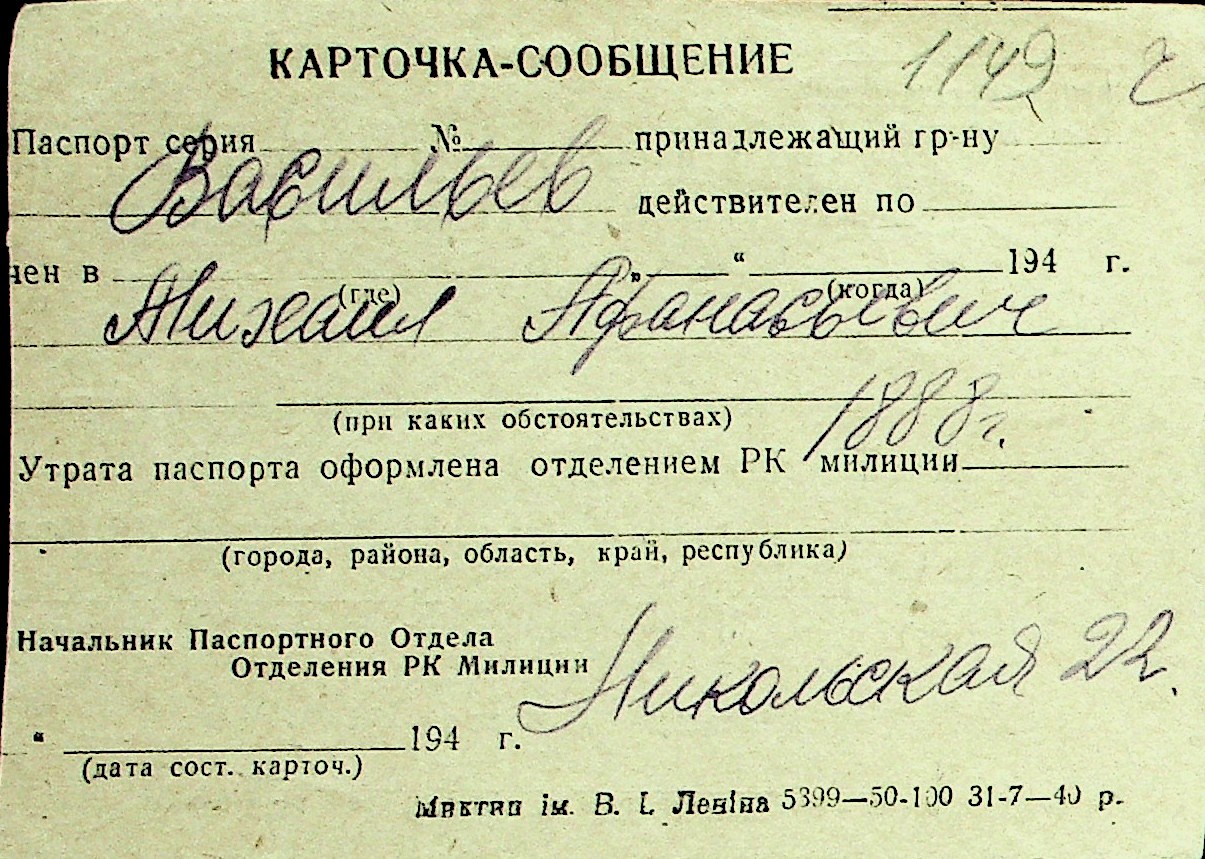 КАРТОЧКА-СООБЩЕНИЕ 1149
Паспорт серия № принадлежащий гр-ну
Васильев действителен по
чен в „ “ 194 г.
(где) (когда)
Михаил Афанасьевич
(при каких обстоятельствах)
1888 г.
Утрата паспорта оформлена отделением РК милиции
(города, района, область, край, республика)
Начальник Паспортного Отдела
Отделения РК Милиции
Никольская 22.
“ 194 г.
(дата сост. карточ.)
ім. В. І. Леніна 5399—50-100 31-7—40 р.